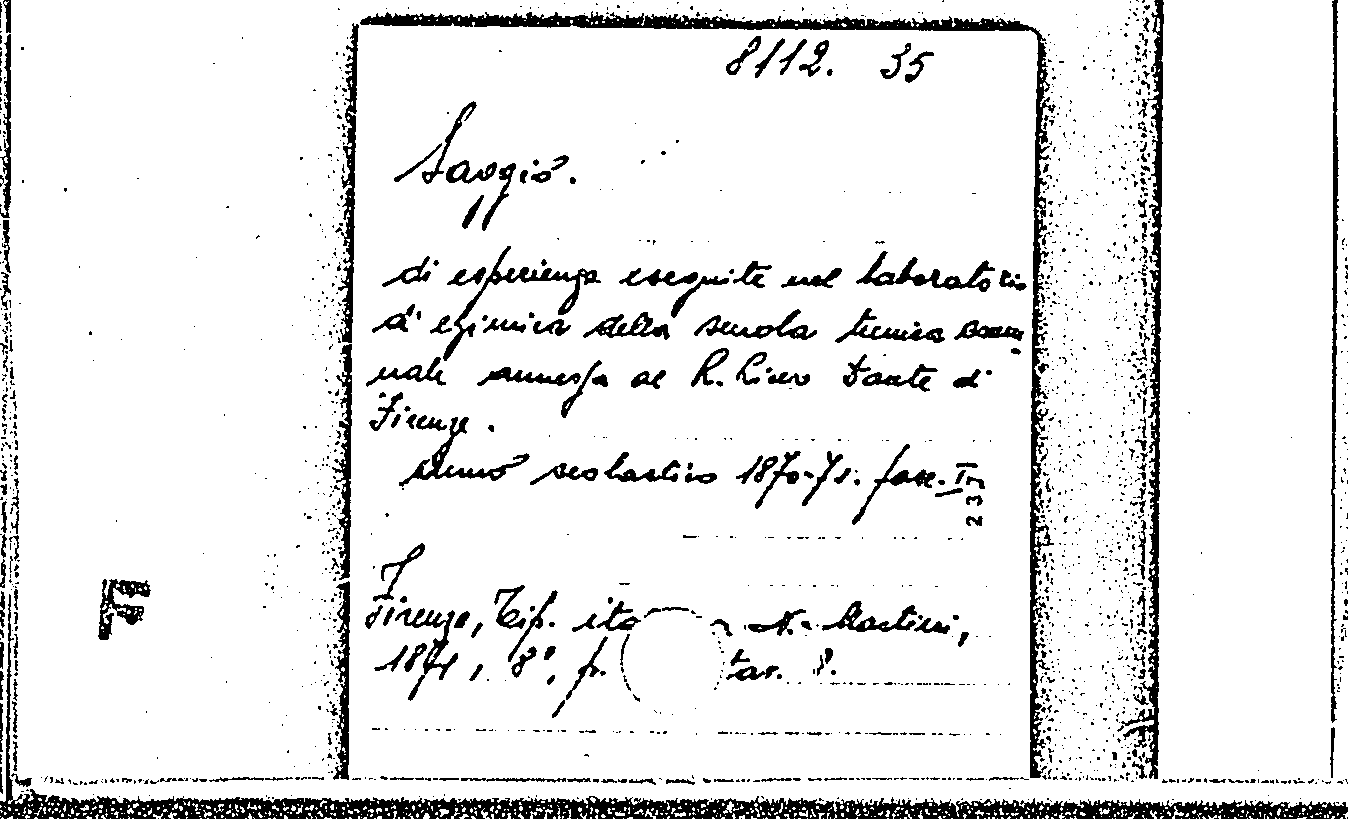 8112. 35
Saggio.
di esperienze eseguite nel laboratorio
di chimica della scuola tecnica comu
nale annessa al R. Liceo Dante di
Firenze.
anno scolastico 1870-71. fasc. I
237
Firenze, Tip. ita N. Martini,
1871, 8°, p. tav. 8.
F